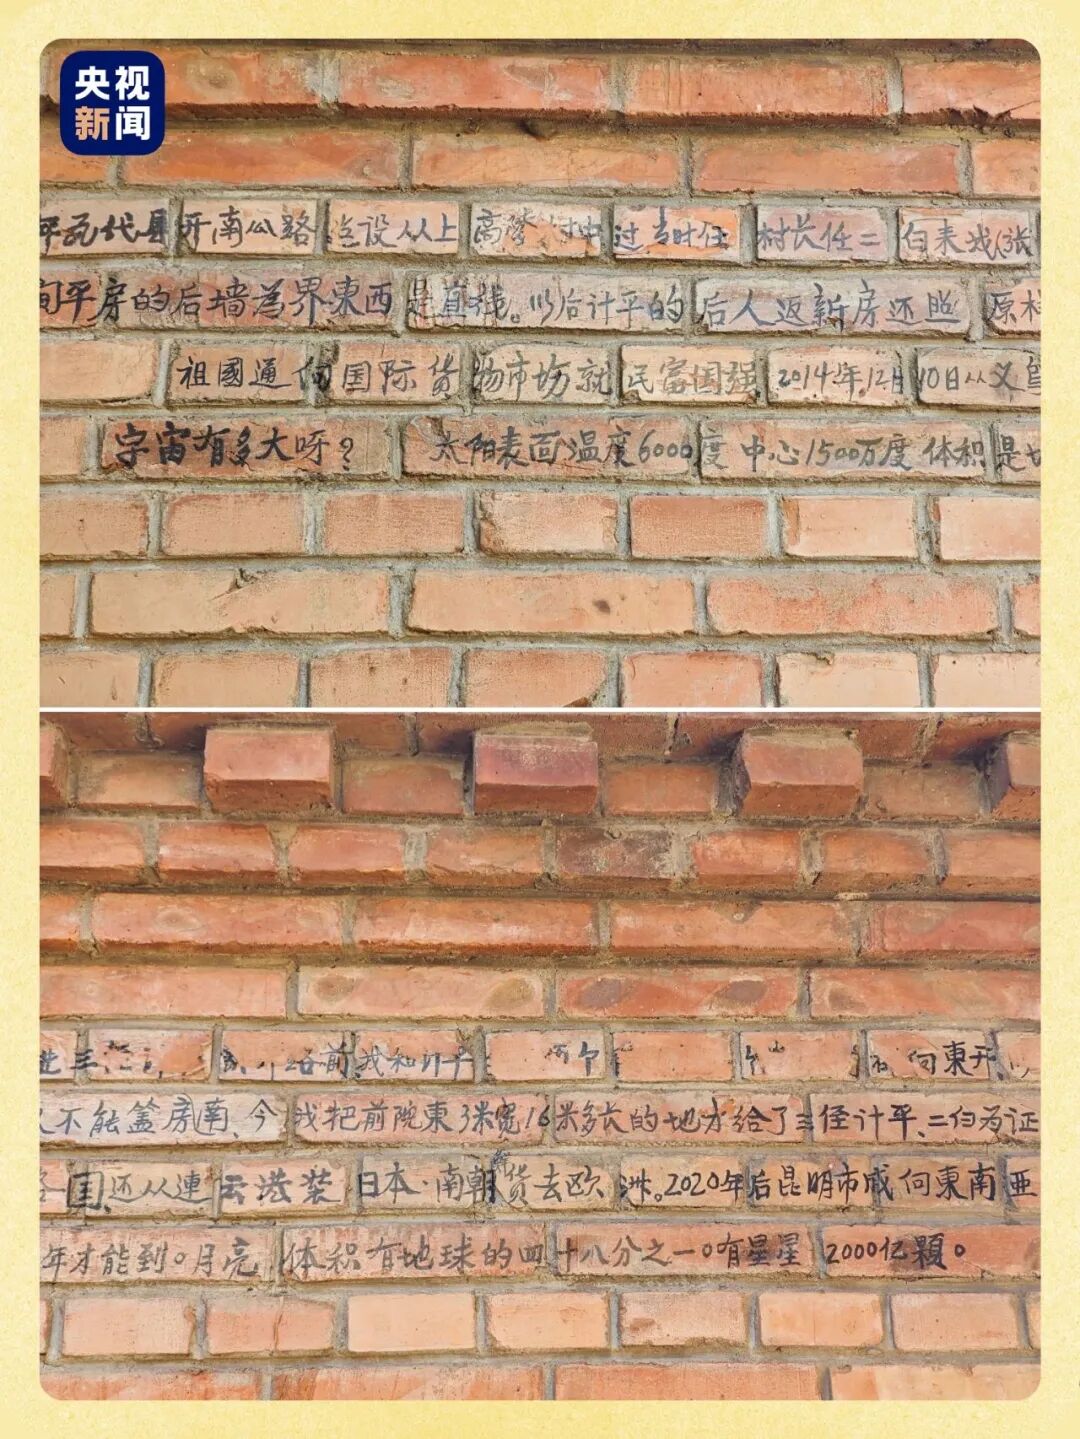 央视
新闻
县开南公路 当设从上 高 村中 过 当时任 村长任二
平房的后墙為界東西是直线。以后计平的后人返新房还照原
祖國通向国际货物市场就民富国强2014年12月10日从义
宇宙有多大呀？ 太阳表面温度6000度中心1500万度体积是
前 我和计平 向東开
不能盖房南、今我把前院東3米宽16米多长的地方给了三侄计平、二伯为证
国还从連云港装日本·南朝鲜货去欧洲。2020年后昆明市成向東南亚
年才能到。月亮体积有地球的四十八分之一。有星星2000亿顆。